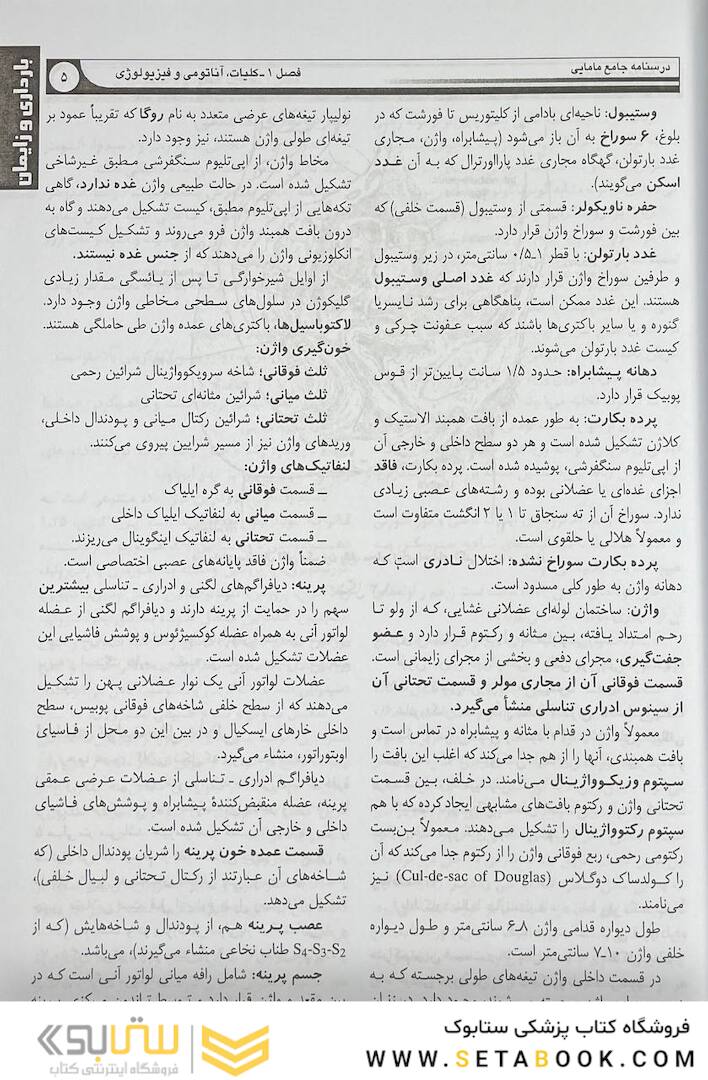 درسنامه جامع مامایی
فصل ۱ ـ کلیات، آناتومی و فیزیولوژی
۵
بارداری و زایمان
وستیبول: ناحیه‌ای بادامی از کلیتوریس تا فورشت که در
بلوغ، ۶ سوراخ به آن باز می‌شود (پیشابراه، واژن، مجاری
غدد بارتولن، گهگاه مجاری غدد پارااورترال که به آن غدد
اسکن می‌گویند).
حفره ناویکولر: قسمتی از وستیبول (قسمت خلفی) که
بین فورشت و سوراخ واژن قرار دارد.
غدد بارتولن: با قطر ۱ـ۰/۵ سانتی‌متر، در زیر وستیبول
و طرفین سوراخ واژن قرار دارند که غدد اصلی وستیبول
هستند. این غدد ممکن است، پناهگاهی برای رشد نایسریا
گنوره و یا سایر باکتری‌ها باشند که سبب عفونت چرکی و
کیست غدد بارتولن می‌شوند.
دهانه پیشابراه: حدود ۱/۵ سانت پایین‌تر از قوس
پوبیک قرار دارد.
پرده بکارت: به طور عمده از بافت همبند الاستیک و
کلاژن تشکیل شده است و هر دو سطح داخلی و خارجی آن
از اپی‌تلیوم سنگفرشی، پوشیده شده است. پرده بکارت، فاقد
اجزای غده‌ای یا عضلانی بوده و رشته‌های عصبی زیادی
ندارد. سوراخ آن از ته سنجاق تا ۱ یا ۲ انگشت متفاوت است
و معمولاً هلالی یا حلقوی است.
پرده بکارت سوراخ نشده: اختلال نادری است که
دهانه واژن به طور کلی مسدود است.
واژن: ساختمان لوله‌ای عضلانی غشایی، که از ولو تا
رحم امتداد یافته، بین مثانه و رکتوم قرار دارد و عضو
جفت‌گیری، مجرای دفعی و بخشی از مجرای زایمانی است.
قسمت فوقانی آن از مجاری مولر و قسمت تحتانی آن
از سینوس ادراری تناسلی منشأ می‌گیرد.
معمولاً واژن در قدام با مثانه و پیشابراه در تماس است و
بافت همبندی، آنها را از هم جدا می‌کند که اغلب این بافت را
سپتوم وزیکوواژینال می‌نامند. در خلف، بین قسمت
تحتانی واژن و رکتوم بافت‌های مشابهی ایجاد کرده که با هم
سپتوم رکتوواژینال را تشکیل می‌دهند. معمولاً بن‌بست
رکتومی رحمی، ربع فوقانی واژن را از رکتوم جدا می‌کند که آن
را کولدساک دوگلاس (Cul-de-sac of Douglas) نیز
می‌نامند.
طول دیواره قدامی واژن ۸ـ۶ سانتی‌متر و طول دیواره
خلفی واژن ۱۰ـ۷ سانتی‌متر است.
در قسمت داخلی واژن تیغه‌های طولی برجسته که به
نولیپار تیغه‌های عرضی متعدد به نام روگا که تقریباً عمود بر
تیغه‌ای طولی واژن هستند، نیز وجود دارد.
مخاط واژن، از اپی‌تلیوم سنگفرشی مطبق غیرشاخی
تشکیل شده است. در حالت طبیعی واژن غده ندارد، گاهی
تکه‌هایی از اپی‌تلیوم مطبق، کیست تشکیل می‌دهند و گاه به
درون بافت همبند واژن فرو می‌روند و تشکیل کیست‌های
انکلوزیونی واژن را می‌دهند که از جنس غده نیستند.
از اوایل شیرخوارگی تا پس از یائسگی مقدار زیادی
گلیکوژن در سلول‌های سطحی مخاطی واژن وجود دارد.
لاکتوباسیل‌ها، باکتری‌های عمده واژن طی حاملگی هستند.
خون‌گیری واژن:
ثلث فوقانی؛ شاخه سرویکوواژینال شرائین رحمی
ثلث میانی؛ شرائین مثانه‌ای تحتانی
ثلث تحتانی؛ شرائین رکتال میانی و پودندال داخلی،
وریدهای واژن نیز از مسیر شرایین پیروی می‌کنند.
لنفاتیک‌های واژن:
ـ قسمت فوقانی به گره ایلیاک
ـ قسمت میانی به لنفاتیک ایلیاک داخلی
ـ قسمت تحتانی به لنفاتیک اینگوینال می‌ریزند.
ضمناً واژن فاقد پایانه‌های عصبی اختصاصی است.
پرینه: دیافراگم‌های لگنی و ادراری ـ تناسلی بیشترین
سهم را در حمایت از پرینه دارند و دیافراگم لگنی از عضله
لواتور آنی به همراه عضله کوکسیژئوس و پوشش فاشیایی این
عضلات تشکیل شده است.
عضلات لواتور آنی یک نوار عضلانی پهن را تشکیل
می‌دهند که از سطح خلفی شاخه‌های فوقانی پوبیس، سطح
داخلی خارهای ایسکیال و در بین این دو محل از فاسیای
اوبتوراتور، منشاء می‌گیرد.
دیافراگم ادراری ـ تناسلی از عضلات عرضی عمقی
پرینه، عضله منقبض‌کنندهٔ پیشابراه و پوشش‌های فاشیای
داخلی و خارجی آن تشکیل شده است.
قسمت عمده خون پرینه را شریان پودندال داخلی (که
شاخه‌های آن عبارتند از رکتال تحتانی و لبیال خلفی)،
تشکیل می‌دهد.
عصب پرینه هم، از پودندال و شاخه‌هایش (که از
S4-S3-S2 طناب نخاعی منشاء می‌گیرند)، می‌باشد.
جسم پرینه: شامل رافه میانی لواتور آنی است که در
فروشگاه کتاب پزشکی ستابوک
WWW.SETABOOK.COM
ستابوک
فروشگاه اینترنتی کتاب